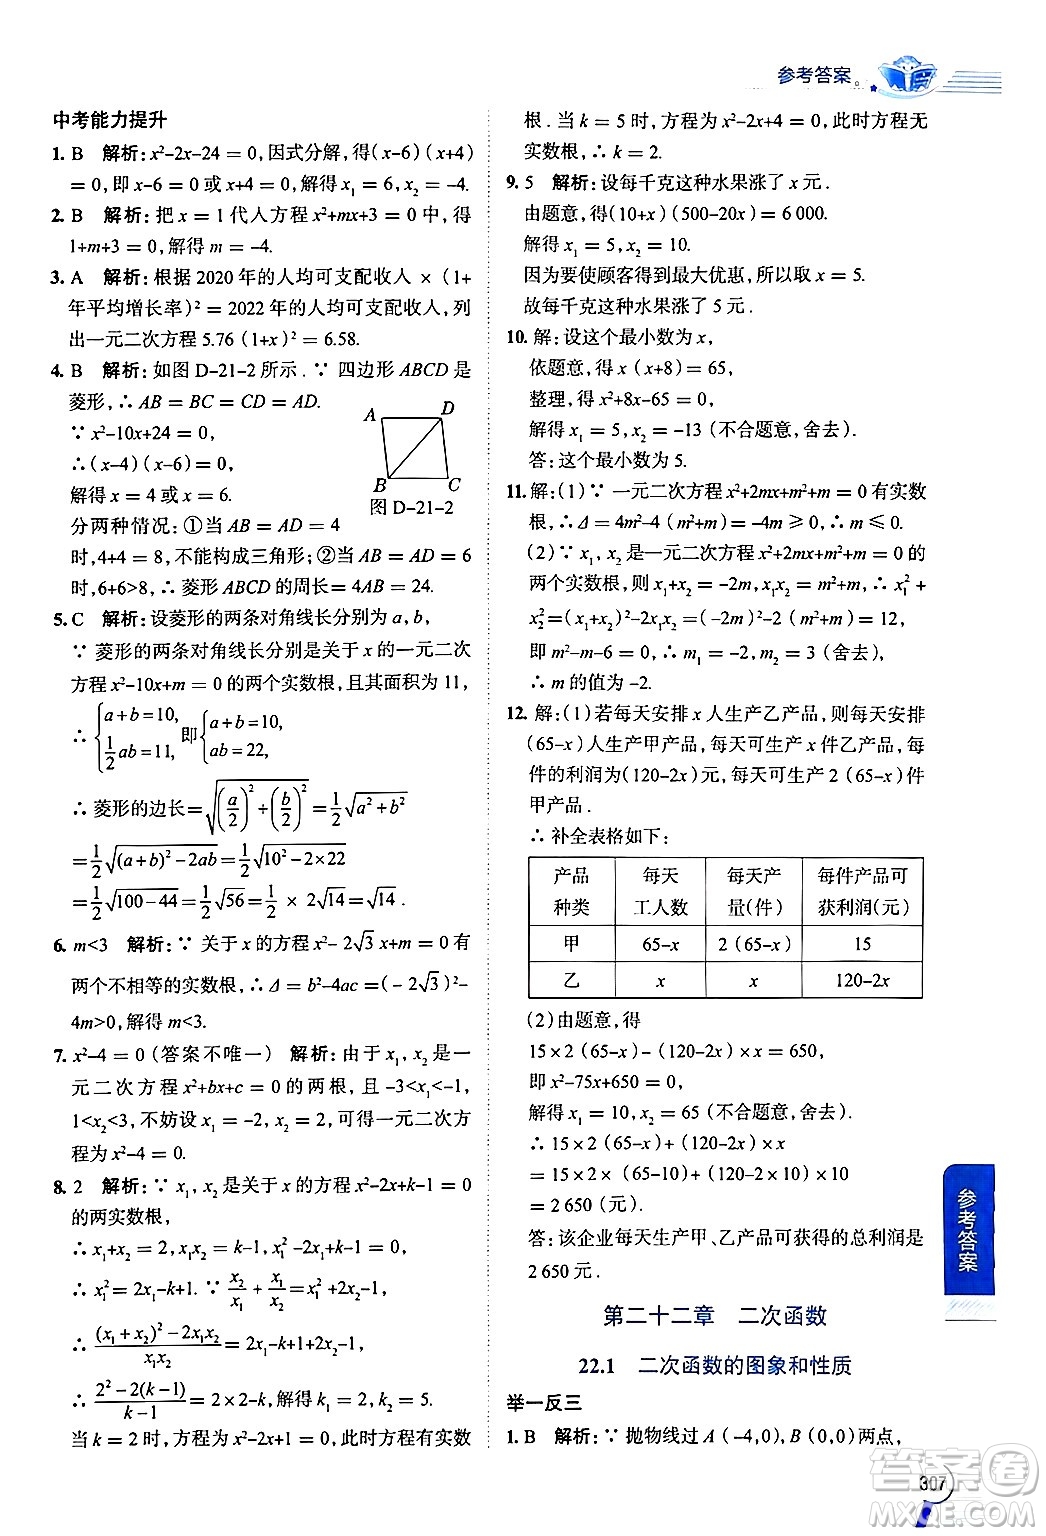 参考答案
中考能力提升
1. B 解析: x²-2x-24 = 0, 因式分解, 得(x-6) (x+4)
= 0, 即 x-6 = 0 或 x+4 = 0, 解得 x₁ = 6, x₂ = -4.
2. B 解析: 把 x = 1 代人方程 x²+mx+3 = 0 中, 得
1+m+3 = 0, 解得 m = -4.
3. A 解析: 根据 2020 年的人均可支配收人 × (1+
年平均增长率)² = 2022 年的人均可支配收人, 列
出一元二次方程 5.76 (1+x)² = 6.58.
4. B 解析: 如图 D-21-2 所示. ∵ 四边形 ABCD 是
菱形, ∴ AB = BC = CD = AD.
∵ x²-10x+24 = 0,
∴ (x-4) (x-6) = 0,
解得 x = 4 或 x = 6.
A D
B C
图 D-21-2
分两种情况: ①当 AB = AD = 4
时, 4+4 = 8, 不能构成三角形; ②当 AB = AD = 6
时, 6+6>8, ∴ 菱形 ABCD 的周长 = 4AB = 24.
5. C 解析: 设菱形的两条对角线长分别为 a, b,
∵ 菱形的两条对角线长分别是关于 x 的一元二次
方程 x²-10x+m = 0 的两个实数根, 且其面积为 11,
∴ {a+b=10, 1/2 ab=11, 即 {a+b=10, ab=22,
∴ 菱形的边长 = √((a/2)²+(b/2)²) = 1/2 √(a²+b²)
= 1/2 √((a+b)²-2ab) = 1/2 √(10²-2×22)
= 1/2 √(100-44) = 1/2 √56 = 1/2 × 2√14 = √14 .
6. m<3 解析: ∵ 关于 x 的方程 x²- 2√3 x+m = 0 有
两个不相等的实数根, ∴ Δ = b²-4ac = (- 2√3 )²-
4m>0, 解得 m<3.
7. x²-4 = 0 (答案不唯一) 解析: 由于 x₁, x₂ 是一
元二次方程 x²+bx+c = 0 的两根, 且 -3<x₁<-1,
1<x₂<3, 不妨设 x₁ = -2, x₂ = 2, 可得一元二次方
程为 x²-4 = 0.
8. 2 解析: ∵ x₁, x₂ 是关于 x 的方程 x²-2x+k-1 = 0
的两实数根,
∴ x₁+x₂ = 2, x₁·x₂ = k-1, x₁²-2x₁+k-1 = 0,
∴ x₁² = 2x₁-k+1. ∵ x₂/x₁ + x₁/x₂ = x₁²+2x₂-1,
∴ ((x₁+x₂)²-2x₁x₂)/(x₁x₂) = 2x₁-k+1+2x₂-1,
∴ (2²-2(k-1))/(k-1) = 4-k, 解得 k₁ = 2, k₂ = 5.
当 k = 2 时, 方程为 x²-2x+1 = 0, 方程有实数
根 . 当 k = 5 时, 方程为 x²-2x+4 = 0, 此时方程无
实数根, ∴ k = 2.
9. 5 解析: 设每千克这种水果涨了 x 元 .
由题意, 得(10+x) (500-20x) = 6 000.
解得 x₁ = 5, x₂ = 10.
因为要使顾客得到最大优惠, 所以 x = 5.
故每千克这种水果涨了 5 元 .
10. 解: 设这个最小数为 x,
依题意, 得 x (x+8) = 65,
整理, 得 x²+8x-65 = 0,
解得 x₁ = 5, x₂ = -13 (不合题意, 舍去) .
答: 这个最小数为 5.
11. 解: (1) ∵ 一元二次方程 x²+2mx+m²+m = 0 有实数
根, ∴ Δ = 4m²-4 (m²+m) = -4m ≥ 0, ∴ m ≤ 0.
(2) ∵ x₁, x₂ 是一元二次方程 x²+2mx+m²+m = 0 的
两个实数根, 则 x₁+x₂ = -2m, x₁x₂ = m²+m, ∴ x₁² +
x₂² = (x₁+x₂)²-2x₁x₂ = (-2m)²-2 (m²+m) = 12,
即 m²-m-6 = 0, ∴ m₁ = -2, m₂ = 3 (舍去) ,
∴ m 的值为 -2.
12. 解: (1) 若每天安排 x 人生产乙产品, 则每天安排
(65-x) 人生产甲产品, 每天可生产 x 件乙产品, 每
件的利润为(120-2x)元, 每天可生产 2 (65-x) 件
甲产品 .
∴ 补全表格如下:
产品种类 每天工人数 每天产量(件) 每件产品可获利润(元)
甲 65-x 2 (65-x) 15
乙 x x 120-2x
(2) 由题意, 得
15 × 2 (65-x) -x (120-2x) = 650,
即 x²-75x+650 = 0,
解得 x₁ = 10, x₂ = 65 (不合题意, 舍去) .
∴ 15 × 2 (65-x) +x (120-2x)
= 15 × 2 × (65-10) + (120-2 × 10) × 10
= 2 650 (元) .
答: 该企业每天生产甲、乙产品可获得的总利润是
2 650 元 .
第二十二章 二次函数
22.1 二次函数的图象和性质
举一反三
1. B 解析: ∵ 抛物线过 A (-4,0) , B (0,0) 两点,
参考答案
307
答案圈
MXQE.COM